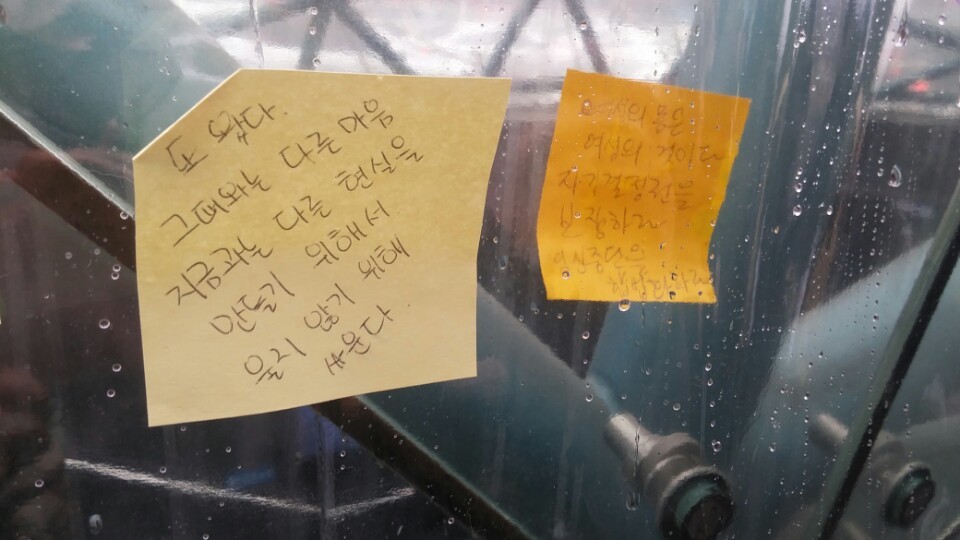 또 왔다.
그때와는 다른 마음
지금과는 다른 현실을
만들기 위해서
울지 않기 위해
싸운다
여성의 몸은
여성의 것이다
자기결정권을
보장하라
임신중단의
합법화하라